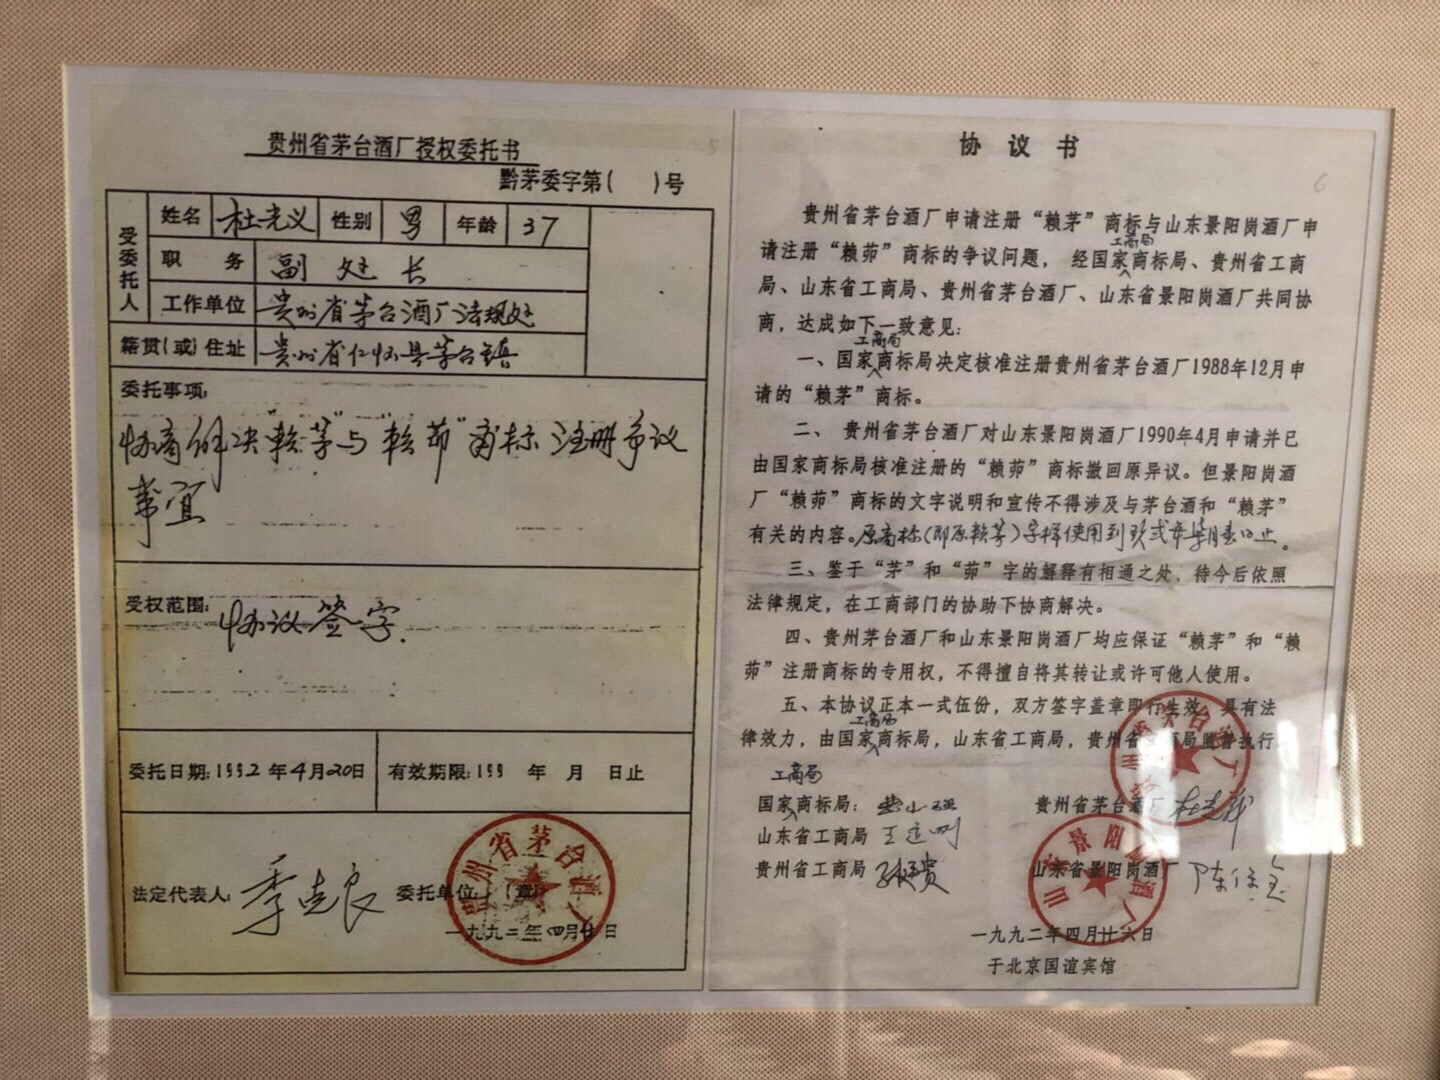 贵州省茅台酒厂授权委托书
黔茅委字第( )号
受委托人
姓名 杜光义 性别 男 年龄 37
职务 副处长
工作单位 贵州省茅台酒厂法规处
籍贯(或)住址 贵州省仁怀县茅台镇
委托事项:
协商解决“赖茅”与“赖茆”商标注册争议
事宜
受权范围: 协议签字.
委托日期:1992年4月20日 有效期限:199 年 月 日止
法定代表人: 季克良 委托单位:(章)
一九九二年四月廿日
贵州省茅台酒厂
协议书
6
贵州省茅台酒厂申请注册“赖茅”商标与山东景阳岗酒厂申
请注册“赖茆”商标的争议问题，经国家工商局商标局、贵州省工商
局、山东省工商局、贵州省茅台酒厂、山东省景阳岗酒厂共同协
商，达成如下一致意见:
一、国家工商局商标局决定核准注册贵州省茅台酒厂1988年12月申
请的“赖茅”商标。
二、贵州省茅台酒厂对山东景阳岗酒厂1990年4月申请并已
由国家商标局核准注册的“赖茆”商标撤回原异议。但景阳岗酒
厂“赖茆”商标的文字说明和宣传不得涉及与茅台酒和“赖茅”
有关的内容。原商标(即原赖茅)字样使用到玖贰年柒月壹日止。
三、鉴于“茅”和“茆”字的解释有相通之处，待今后依照
法律规定，在工商部门的协助下协商解决。
四、贵州茅台酒厂和山东景阳岗酒厂均应保证“赖茅”和“赖
茆”注册商标的专用权，不得擅自将其转让或许可他人使用。
五、本协议正本一式伍份，双方签字盖章即行生效，具有法
律效力，由国家工商局商标局，山东省工商局，贵州省工商局监督执行
国家工商局商标局: 贵州省茅台酒厂
山东省工商局
贵州省工商局 山东省景阳岗酒厂
一九九二年四月廿六日
于北京国谊宾馆